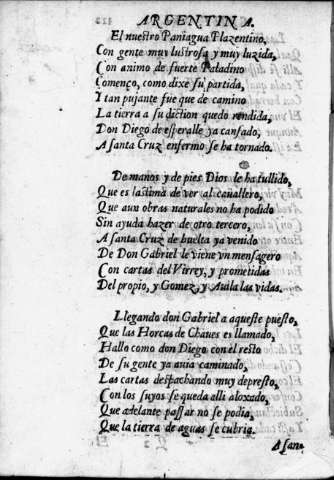 ARGENTINA.
El nuestro Paniagua Plazentino,
Con gente muy lustrosa y muy luzida,
Con animo de fuerte Paladino
Començo, como dixe su partida,
I tan pujante fue que de camino
La tierra a su diction quedo rendida,
Don Diego de esperalle ya cansado,
A santa Cruz enfermo se ha tornado.
De manos y de pies Dios le ha tullido,
Que es lastima de ver al cauallero,
Que aun obras naturales no ha podido
Sin ayuda hazer de otro tercero,
A santa Cruz de buelta ya venido
De Don Gabriel le viene vn mensagero
Con cartas del Virrey, y prometidas
Del propio, y Gomez, y Auala las vidas.
Llegando don Gabriel a aqueste puesto,
Que las Horcas de Chaues es llamado,
Hallo como don Diego con el resto
De su gente ya auia caminado,
Las cartas despachando muy depresto,
Con los suyos se queda alli aloxado,
Que adelante passar no se podia,
Que la tierra de aguas se cubria.
A san-